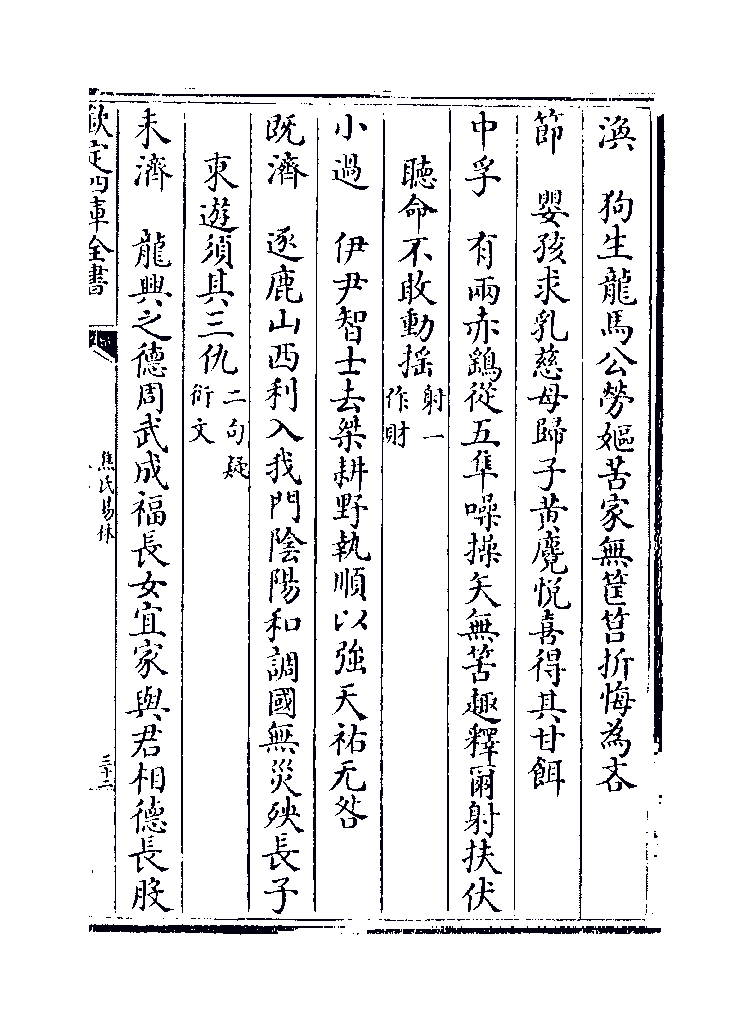 渙　狗生龍馬公勞嫗苦家無筐筥折悔為吝
節　嬰孩求乳慈母歸子黃麑悅喜得其甘餌
中孚　有兩赤鷂從五隼噪操矢無筈趣釋爾射扶伏
聽命不敢動揺射一作財
小過　伊尹智士去桀耕野執順以強天祐无咎
既濟　逐鹿山西利入我門陰陽和調國無災殃長子
東遊須其三仇二句疑衍文
未濟　龍興之德周武成福長女宜家與君相德長股
欽定四庫全書
焦氏易林
三十二